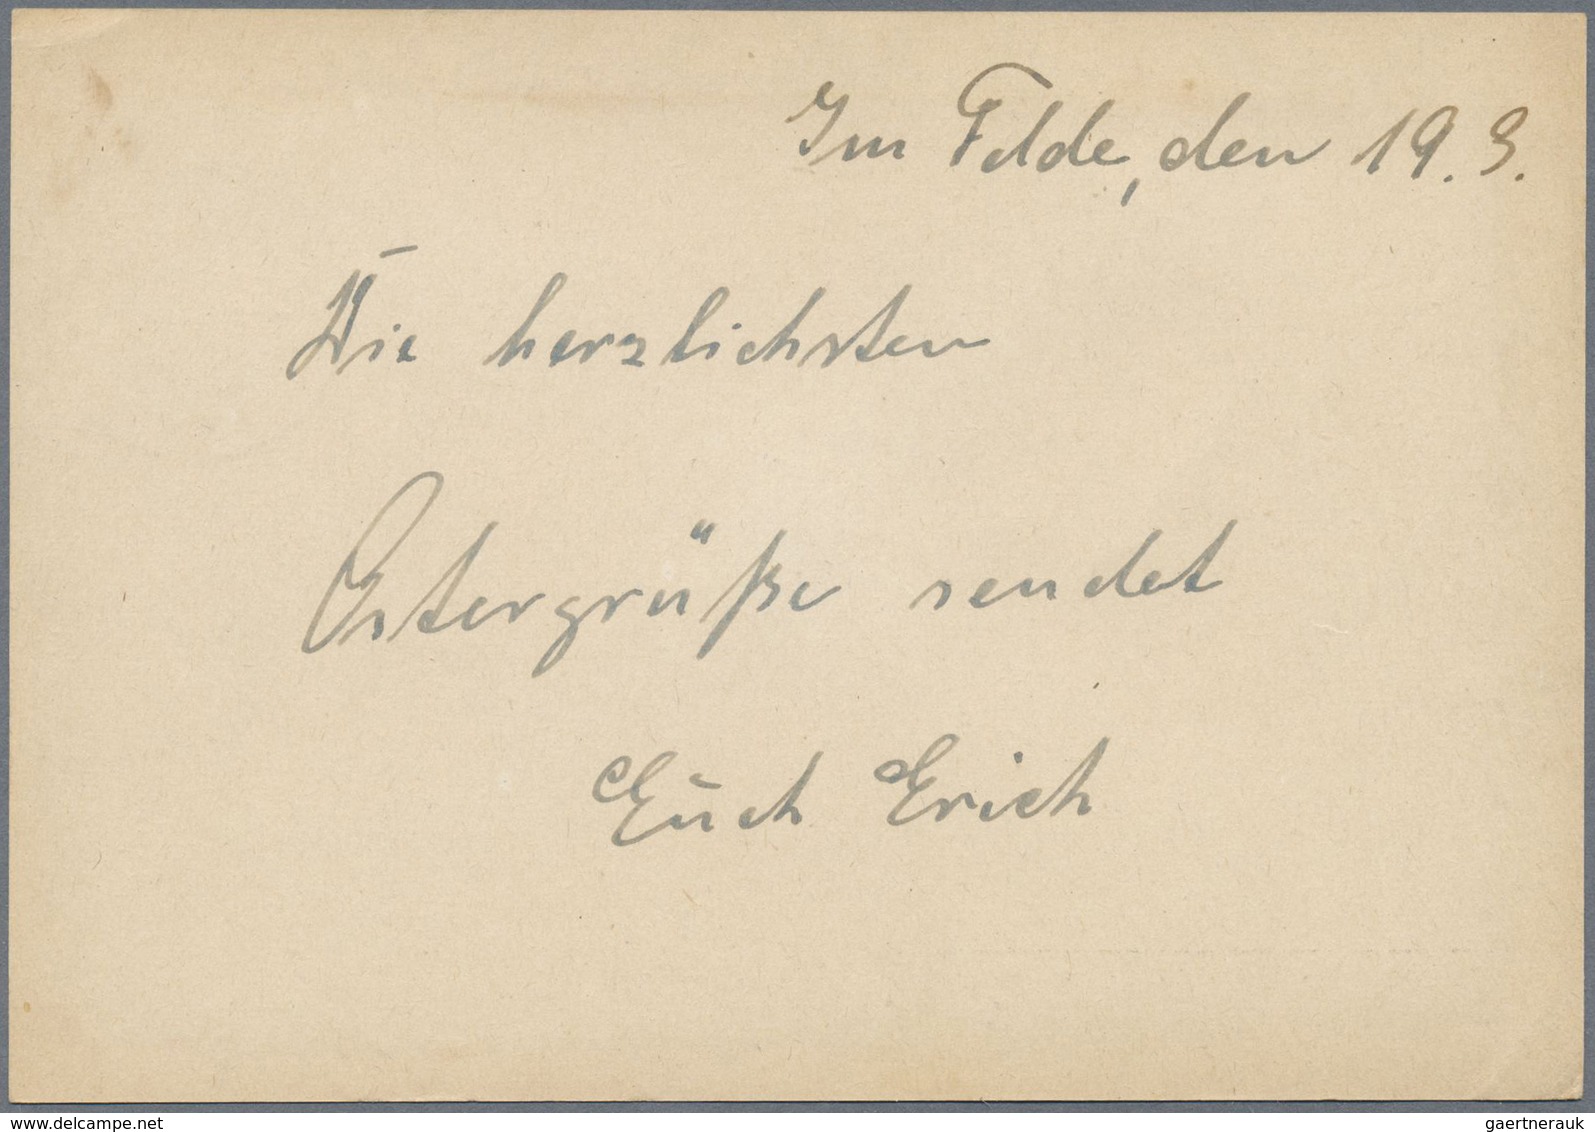 Im Felde, den 19.3.
Die herzlichsten
Ostergrüße sendet
Euch Erich
www.delcampe.net
gaertnerauk